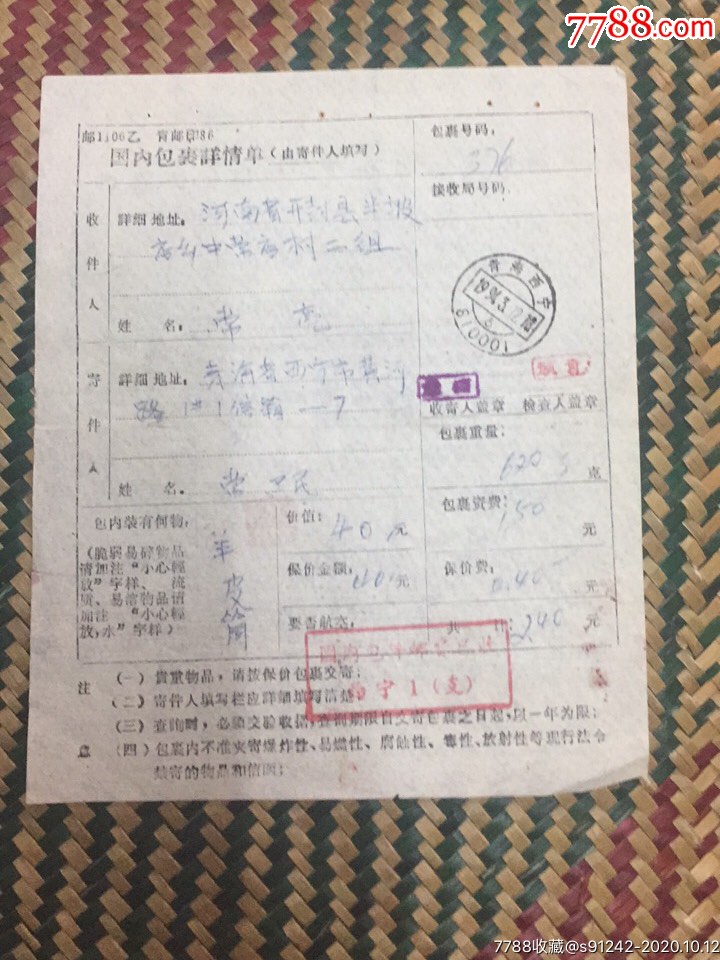 7788.com
邮1106乙 青邮印86
国内包裹詳情单(由寄件人填写)
包裹号码:
376
接收局号码
收件人
詳細地址:河南省开封县半坡
店乡中常店村二组
姓 名:常 亮
青海西宁
1994.3.12.18
6
810001
寄件人
詳細地址:青海省西宁市黄河
路
姓 名。常卫民
收寄人盖章 检查人盖章
包裹重量:
620 克
包内装有何物,
(脆弱易碎物品
请加注“小心輕
放”字样、流
质、易溶物品请
加注“小心輕
放,水”字样)
羊皮筒
价值:40元
保价金额,40元
要否航空:
包裹资费:
1.50元
保价费:
0.40元
共 计:2.40元
国内包件邮资已付
西宁1(支)
注意
(一)貴重物品,请按保价包裹交寄;
(二)寄件人填写栏应詳細填写清楚;
(三)查詢时,必须交验收据,查詢期限自交寄包裹之日起,以一年为限;
(四)包裹内不准夹寄爆炸性、易燃性、腐蚀性、毒性、放射性等现行法令
禁寄的物品和信函;
7788收藏@s91242-2020.10.12